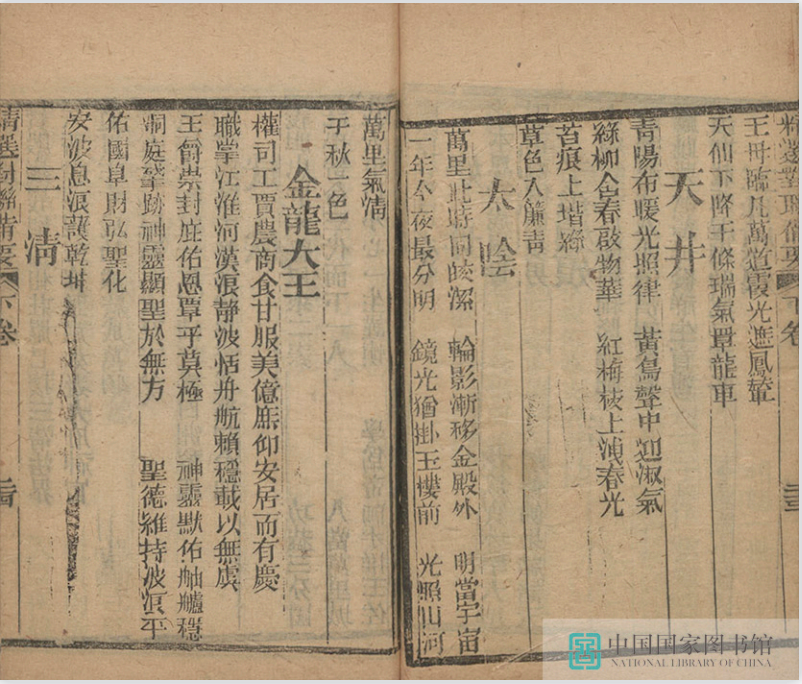 精選對聯備要 下卷
王母臨凡萬道霞光遮鳳輦
天仙下降千條瑞氣罩龍車
天井
青陽布暖光照律 黃鳥聲中迎淑氣
綠柳含春啟物華 紅梅枝上洩春光
苔痕上堦綠
草色入簾青
太陰
萬里此時同皎潔 輪影漸移金殿外 明當宇宙
一年今夜最分明 鏡光猶掛玉樓前 光照山河
萬里氣清
千秋一色
金龍大王
權司工賈農商食甘服美億庶仰安居而有慶
職掌江淮河漢浪靜波恬舟航賴穩載以無虞
王爵崇封庇佑恩覃乎莫極 神靈默佑舳艫穩
洞庭肇跡神靈顯聖於無方 聖德維持波浪平
佑國阜財弘聖化
安波息浪護乾坤
三清
精選對聯備要 下卷
中国国家图书馆
NATIONAL LIBRARY OF CHINA